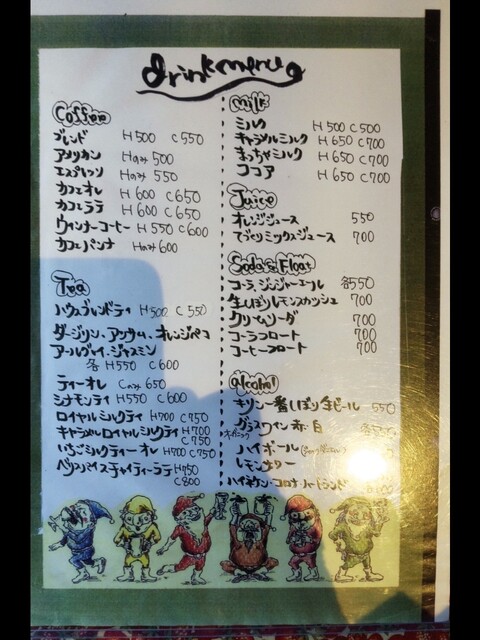 drink menu
Coffee
ブレンド H500 C550
アメリカン Hのみ 500
エスプレッソ Hのみ 550
カフェオレ H600 C650
カフェラテ H600 C650
ウィンナーコーヒー H550 C600
カフェパンナ Hのみ 600
Tea
ハウスブレンドティ H500 C550
ダージリン、アッサム、オレンジペコ
アールグレイ・ジャスミン
各 H550 C600
ティーオレ Cのみ 650
シナモンティ H550 C600
ロイヤルミルクティ H700 C750
キャラメルロイヤルミルクティ H700
C750
いちごミルクティーオレ H700 C750
スパイスチャイティーラテ H750
C800
Milk
ミルク H500 C500
キャラメルミルク H650 C700
まっちゃミルク H650 C700
ココア H650 C700
Juice
オレンジジュース 550
てづくりミックスジュース 700
Soda & Float
コーラ、ジンジャーエール 各550
生しぼりレモンスカッシュ 700
クリームソーダ 700
コーラフロート 700
コーヒーフロート 700
alcohol
キリン一番しぼり生ビール 550
オーガニック グラスワイン 赤・白 各
ハイボール
レモンサワー
ハイネケン・コロナ・ハートランド